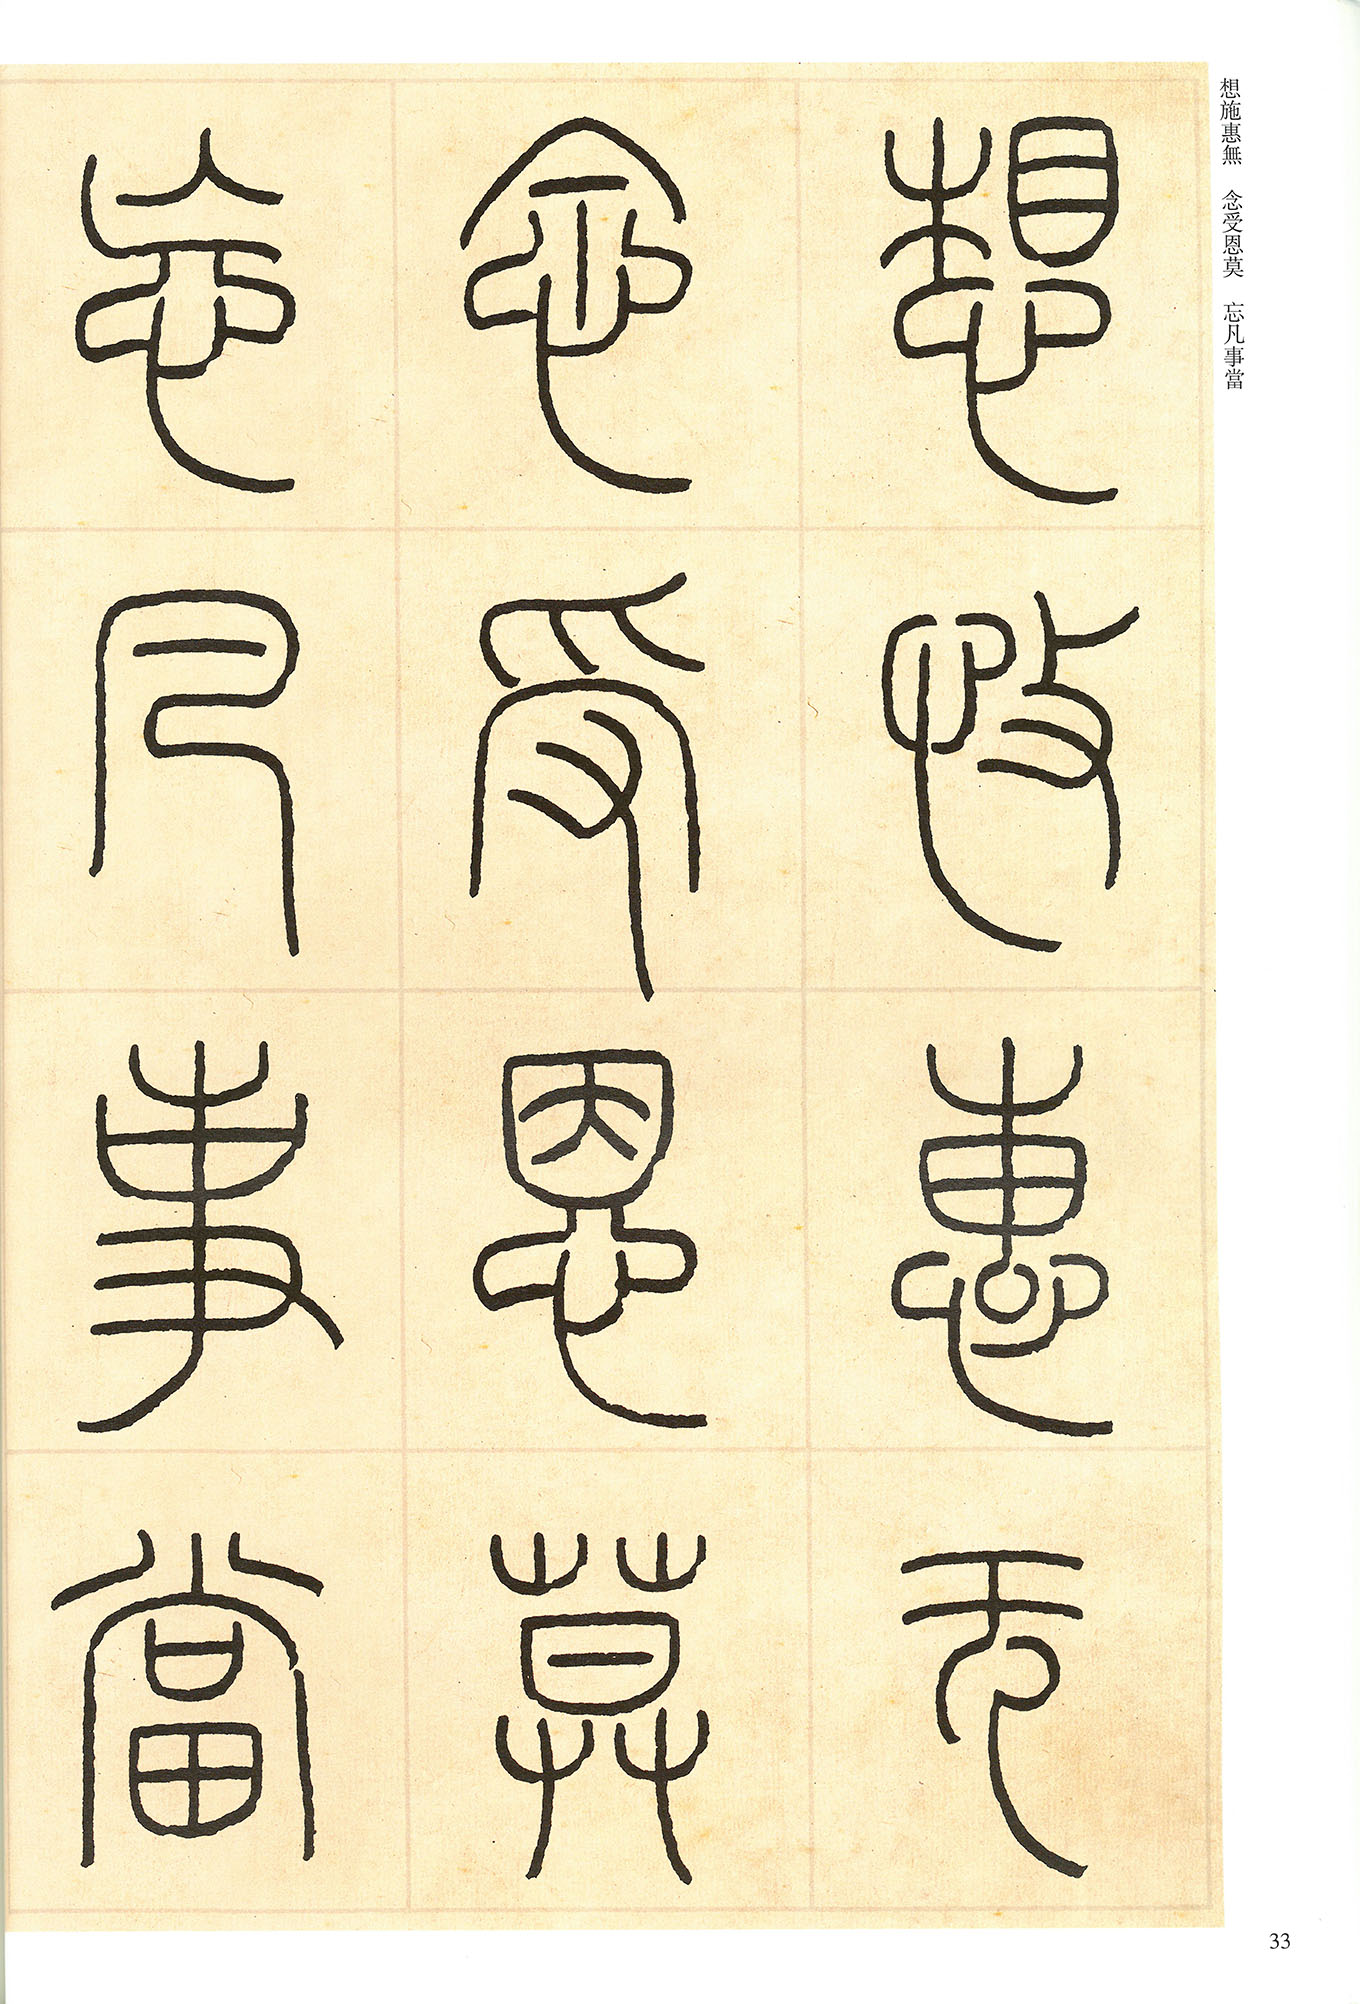 想施惠無　念受恩莫　忘凡事當
想𢻱惠无
念受恩莫
忘凡事當
33